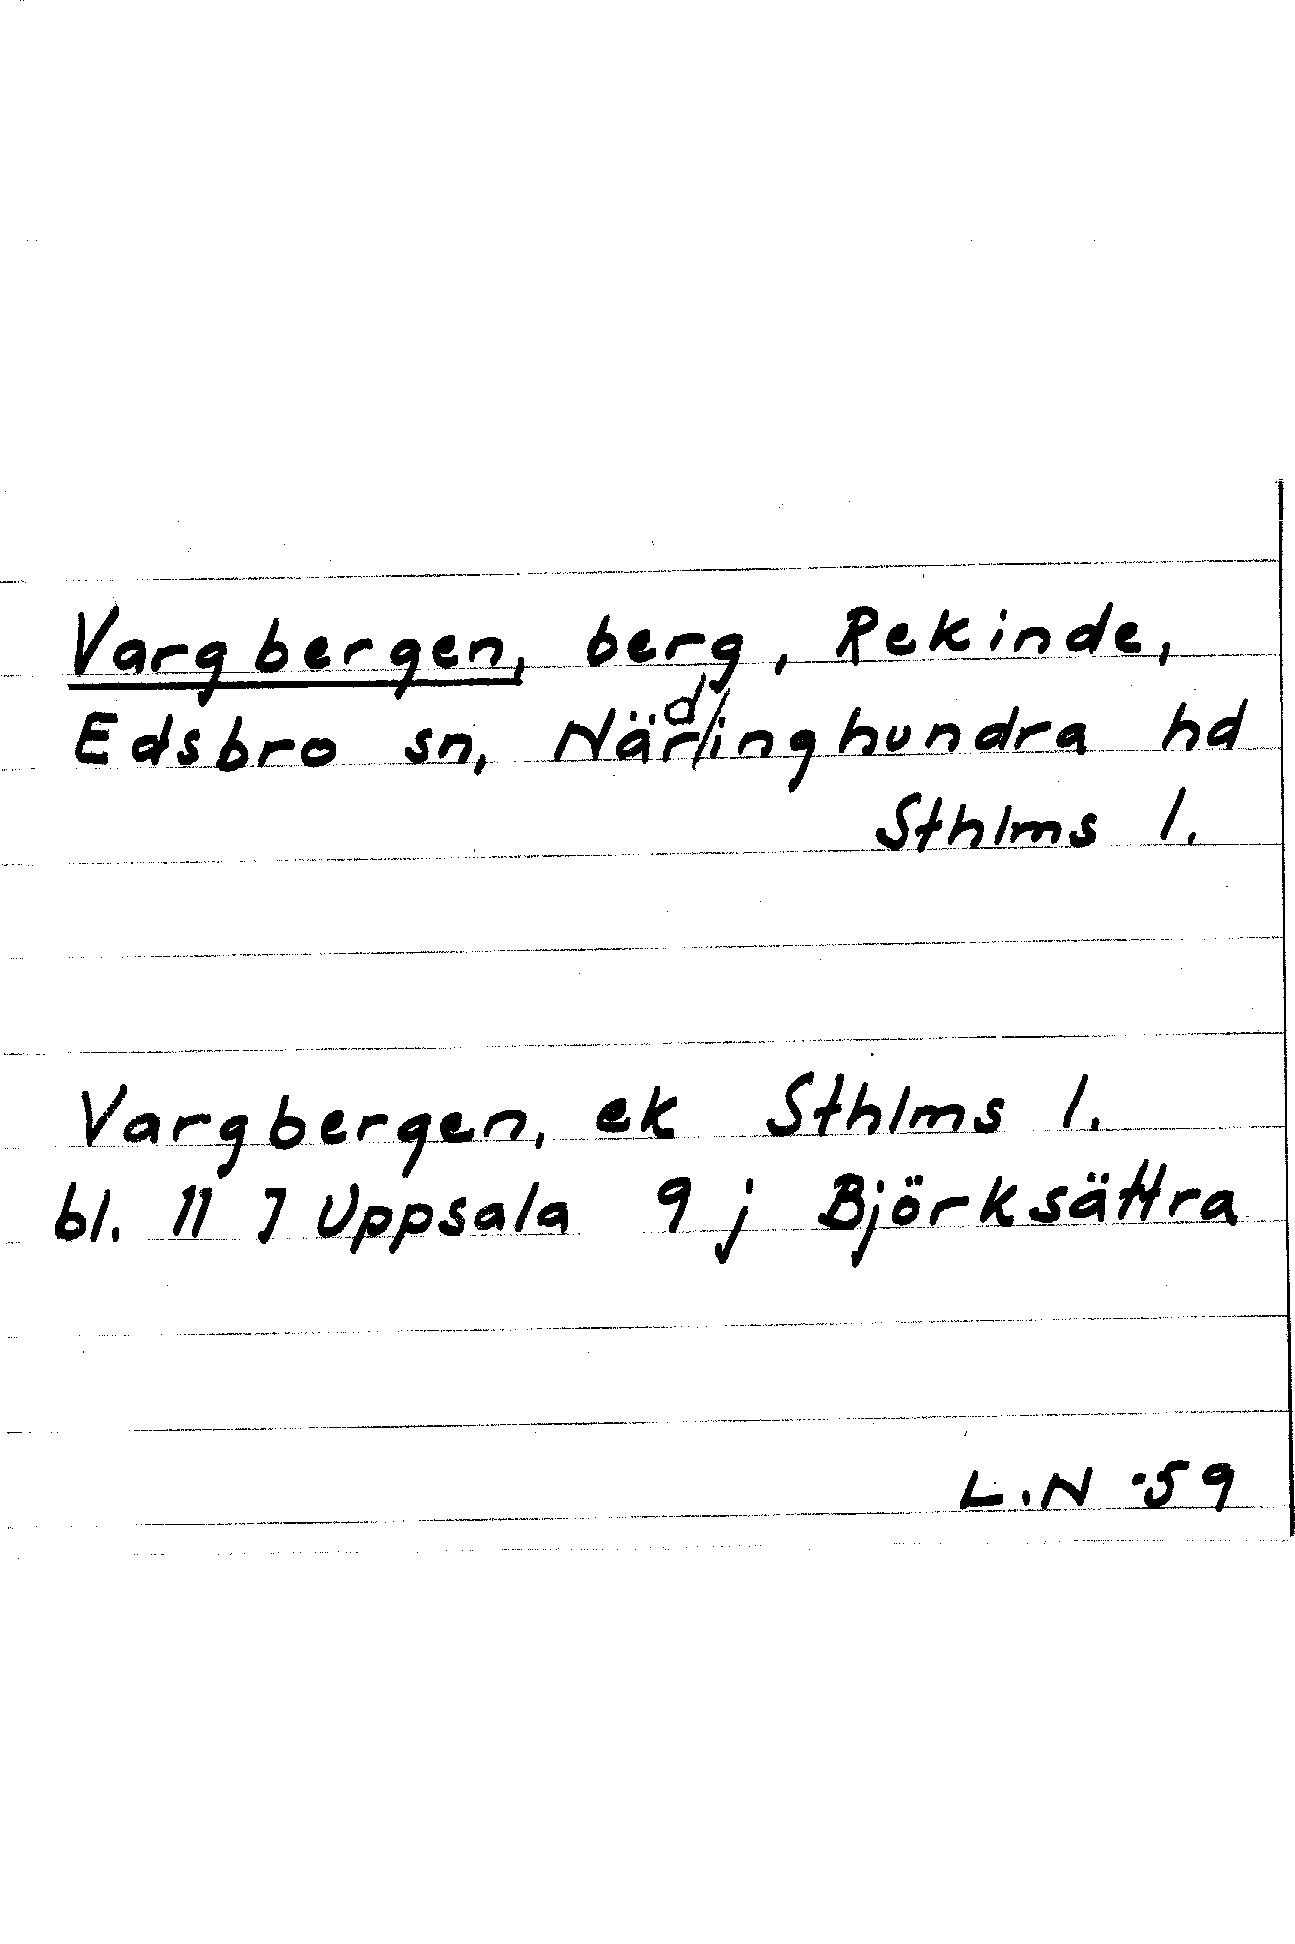 Vargbergen, berg, Rekinde,
Edsbro sn, Närdinghundra hd
Sthlms l.
Vargbergen, ek Sthlms l.
bl. 11 J Uppsala 9 j Björksättra
L.N -59